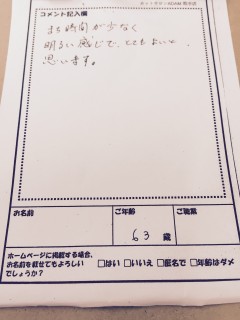 コメント記入欄
まち時間が少なく
明るい感じで、とてもよいと、
思います。
お名前
ご年齢
ご職業
63 歳
ホームページに掲載する場合、
お名前を載せてもよろしい
でしょうか？
□はい □いいえ □匿名で □年齢はダメ